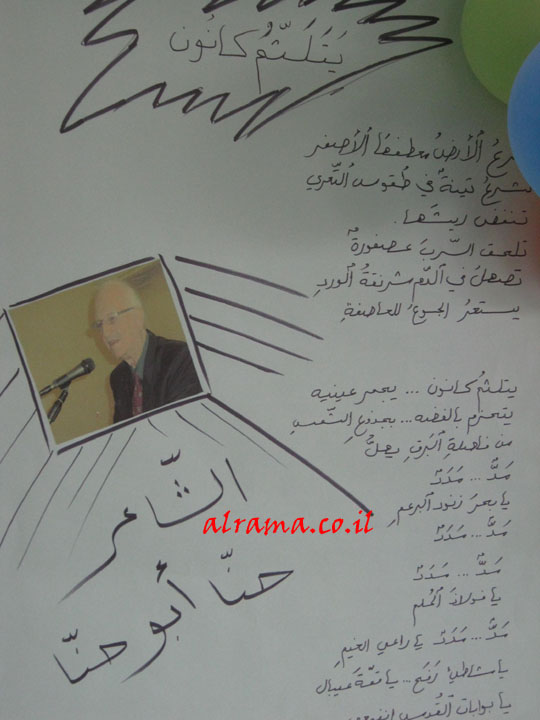 يَتَلَثَّمُ كانُون
الأرضُ معطفها الأصفر
تشرعُ تينةٌ في طقوس التّعري
تنفض ريشها.
تلحق السّربَ عصفورةٌ
تصهلُ في الدّم شرنقةُ الوردِ
يستعرُ الجوعُ للعاصفةِ
يتلثّمُ كانون ... يجمر عينيه
يتحزم بالغضبه ... بجذوع الشّمسِ
من فاصلةِ البرقِ يطلُّ
مَدٌّ ... مَدَدٌ
يا بحرَ زنود البرعمِ
مَدٌّ ... مَدَدٌ
مَدٌّ ... مَدَدٌ
يا فولاذَ الحُلم
مَدٌّ ... مَدَدٌ يا راعي الغيمِ
يا شاطئ رَفَح ... يا قمّةَ عيبال
يا بوابات القُدسِ
الشّاعر
حنّا أبو حنّا
alrama.co.il